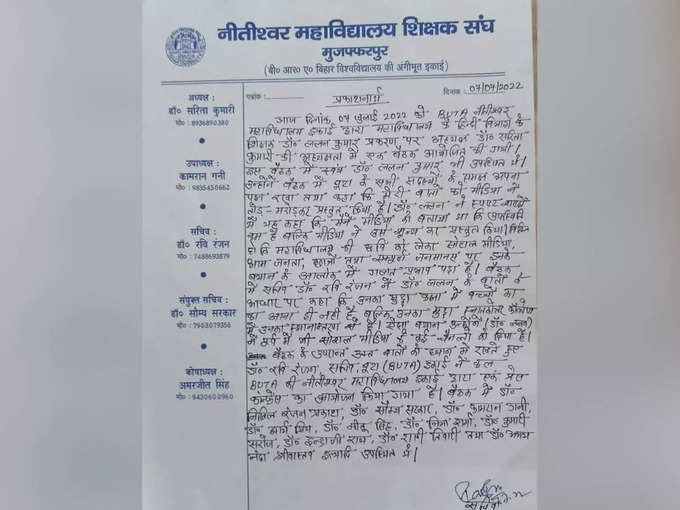 नीतीश्वर महाविद्यालय शिक्षक संघ
मुजफ्फरपुर
(बी० आर० ए० बिहार विश्वविद्यालय की अंगीभूत इकाई)
पत्रांक:
दिनांक: 07/07/2022
अध्यक्ष :
डॉ० सरिता कुमारी
मो० : 8936890380
उपाध्यक्ष :
कामरान गनी
मो० : 9835450662
सचिव :
डॉ० रवि रंजन
मो० : 7488693879
संयुक्त सचिव :
डॉ० सौम्य सरकार
मो० : 7903079356
कोषाध्यक्ष :
अमरजीत सिंह
मो० : 9430600960
प्रकाशनार्थ
आज दिनांक, 07 जुलाई 2022 को BUTA नीतीश्वर
महाविद्यालय इकाई द्वारा महाविद्यालय के हिन्दी विभाग के
शिक्षक डॉ० ललन कुमार प्रकरण पर अध्यक्ष डॉ० सरिता
कुमारी की अध्यक्षता में एक बैठक आयोजित की गयी।
इस बैठक में स्वयं डॉ० ललन कुमार भी उपस्थित थे।
उन्होंने बैठक में बूटा के सभी सदस्यों के समक्ष अपना
पक्ष रखा तथा कहा कि मेरी बातों को मीडिया ने
तोड़-मरोड़कर प्रस्तुत किया है। डॉ० ललन ने स्पष्ट शब्दों
में यह कहा कि मैंने मीडिया को बताया था कि उपस्थिति
कम है बल्कि मीडिया ने उसे शून्य कर प्रस्तुत किया।
कि महाविद्यालय की छवि को लेकर सोशल मीडिया,
आम जनता, छात्रों तथा सम्पूर्ण जनमानस पर उनके
बयान के आलोक में गलत प्रभाव पड़ा है। बैठक
में सचिव डॉ० रवि रंजन ने डॉ० ललन के बातों के
आधार पर कहा कि उनका मुद्दा कक्षा में बच्चों का
का आना ही नहीं है, बल्कि उनका मुद्दा स्नातकोत्तर
में उनका स्थानान्तरण से है। ऐसा बयान उन्होंने (डॉ० ललन)
भी सोशल मीडिया के कई चैनलों को दिया है।
बैठक के उपरान्त उक्त बातों को ध्यान में रखते हुए
डॉ० रवि रंजन, सचिव, बूटा (BUTA) इकाई ने कल
BUTA की नीतीश्वर महाविद्यालय इकाई द्वारा एक प्रेस
कांफ्रेंस का आयोजन किया गया है। बैठक में डॉ०
निखिल रंजन प्रकाश, डॉ० सौम्य सरकार, डॉ० कामरान गनी,
डॉ० सिंह, डॉ० शर्मा, डॉ० कुमारी
सरोज, डॉ० इन्द्राणी राय, डॉ० तिवारी तथा डॉ०
श्रीवास्तव इत्यादि उपस्थित थे।